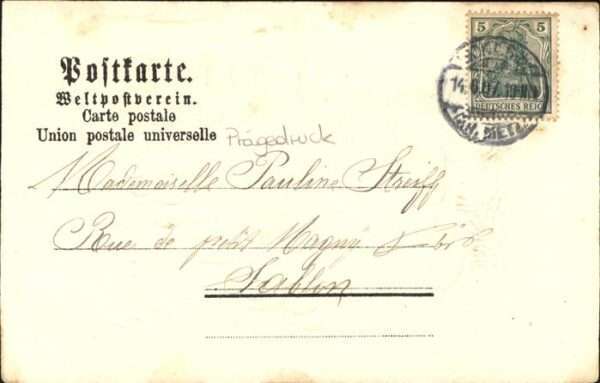 Postkarte.
Weltpostverein.
Carte postale
Union postale universelle
Prägedruck
5 5
DEUTSCHES REICH
14.6.07. 10-11
Mademoiselle Pauline Streiff
Rue de petit Magny
Sablon